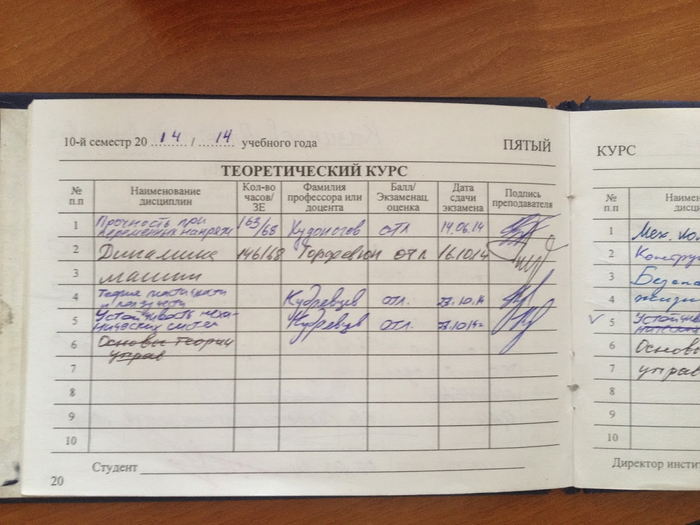 10-й семестр 20 14 / 14 учебного года ПЯТЫЙ
ТЕОРЕТИЧЕСКИЙ КУРС
№ п.п Наименование дисциплин Кол-во часов/ ЗЕ Фамилия профессора или доцента Балл/ Экзаменац. оценка Дата сдачи экзамена Подпись преподавателя
1 Прочность при переменных напряж 163/68 отл 14.06.14
2 Динамика 146/68 отл 16.10.14
3 машин
4 Теория пластичности и ползучести Кудрявцев отл.
5 Устойчивость механических систем Кудрявцев отл.
6 Основы теории
управ
7
8
9
10
Студент
20
КУРС
№ п.п
1 Мех.
2 Констру
3 Безопа
4 жизн
5 Устойчи
6 Основы
7 управ
8
9
10
Директор инсти